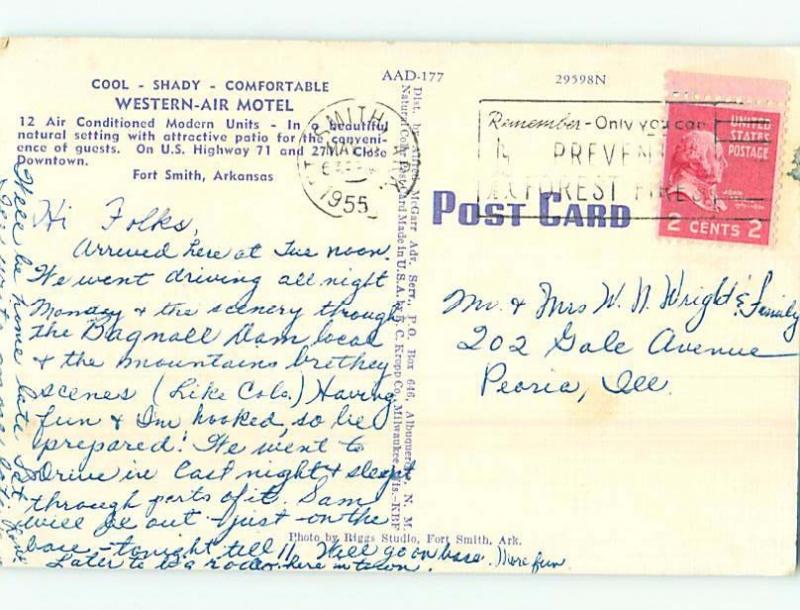 COOL - SHADY - COMFORTABLE
WESTERN-AIR MOTEL
12 Air Conditioned Modern Units - In a beautiful
natural setting with attractive patio for the conveni-
ence of guests. On U.S. Highway 71 and 271. Close
Downtown.
Fort Smith, Arkansas
AAD-177
29598N
SMITH
MAY
1955
Remember - Only you can
PREVENT
FOREST FIRES
UNITED
STATES
POSTAGE
JOHN
2 CENTS 2
POST CARD
Hi Folks,
Arrived here at Tue noon.
We went driving all night
Monday & the scenery through
the Bagnall Dam, local
& the mountains
scenes (Like Colo.) Having
fun & I'm hooked, so be
prepared! We went to
Drive in last night & slept
through parts of it. Sam
will be out just on the
base - tonight till 11. Will go on base. More fun
Later to a rodeo here in town.
We'll be home late Sat
Love
Mr. & Mrs W. N. Wright & Family
202 Gale Avenue
Peoria, Ill.
Dist. by Alfred McGarr Adv. Serv., P.O. Box 646, Albuquerque, N. M.
Natural Color Post Card Made in U.S.A. by E. C. Kropp Co., Milwaukee, Wis.—KBF
Photo by Riggs Studio, Fort Smith, Ark.